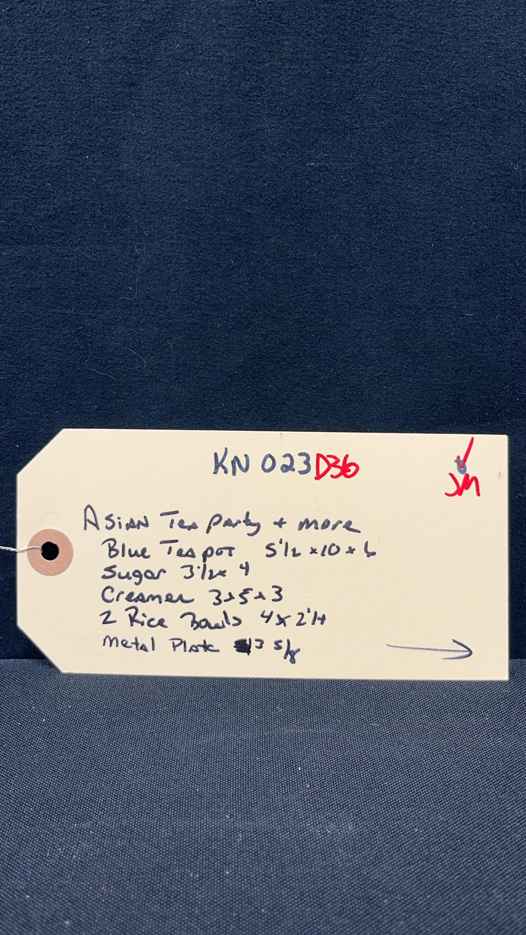 KN 023 D36
JM
Asian Tea Party + more
Blue Teapot 5 1/2 x 10 x 6
Sugar 3 1/2 x 4
Creamer 3 x 5 x 3
2 Rice Bowls 4 x 2 1/4
Metal Plate 3 5/8